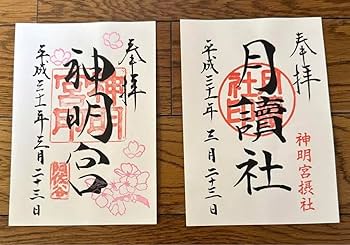 奉拝
神明宮
神明宮印
阿佐谷
平成三十一年三月二十三日
奉拝
月讀社
月讀社印
神明宮摂社
平成三十一年三月二十三日